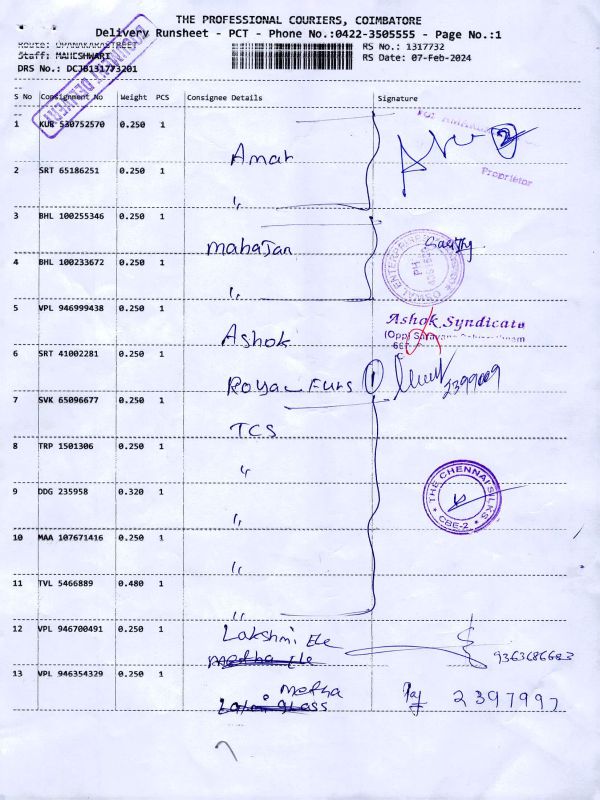 THE PROFESSIONAL COURIERS, COIMBATORE
Delivery Runsheet - PCT - Phone No.:0422-3505555 - Page No.:1
Route:
RS No.: 1317732
Staff: MAHESHWARI
RS Date: 07-Feb-2024
DRS No.: DCJB131773201
S No Consignment No Weight PCS Consignee Details Signature
1 KUB 530752570 0.250 1
Amar
2 SRT 65186251 0.250 1
Proprietor
"
3 BHL 100255346 0.250 1
Mahajan
4 BHL 100233672 0.250 1
"
5 VPL 946999438 0.250 1
Ashok Syndicate
Ashok
6 SRT 41002281 0.250 1
Royal Furs 1 2399009
7 SVK 65096677 0.250 1
TCS
8 TRP 1501306 0.250 1
"
9 DDG 235958 0.320 1
THE CHENNAI SILKS
CBE-2
"
10 MAA 107671416 0.250 1
"
11 TVL 5466889 0.480 1
"
12 VPL 946700491 0.250 1
Lakshmi Ele
Metha Ele
13 VPL 946354329 0.250 1
Metha
2397997